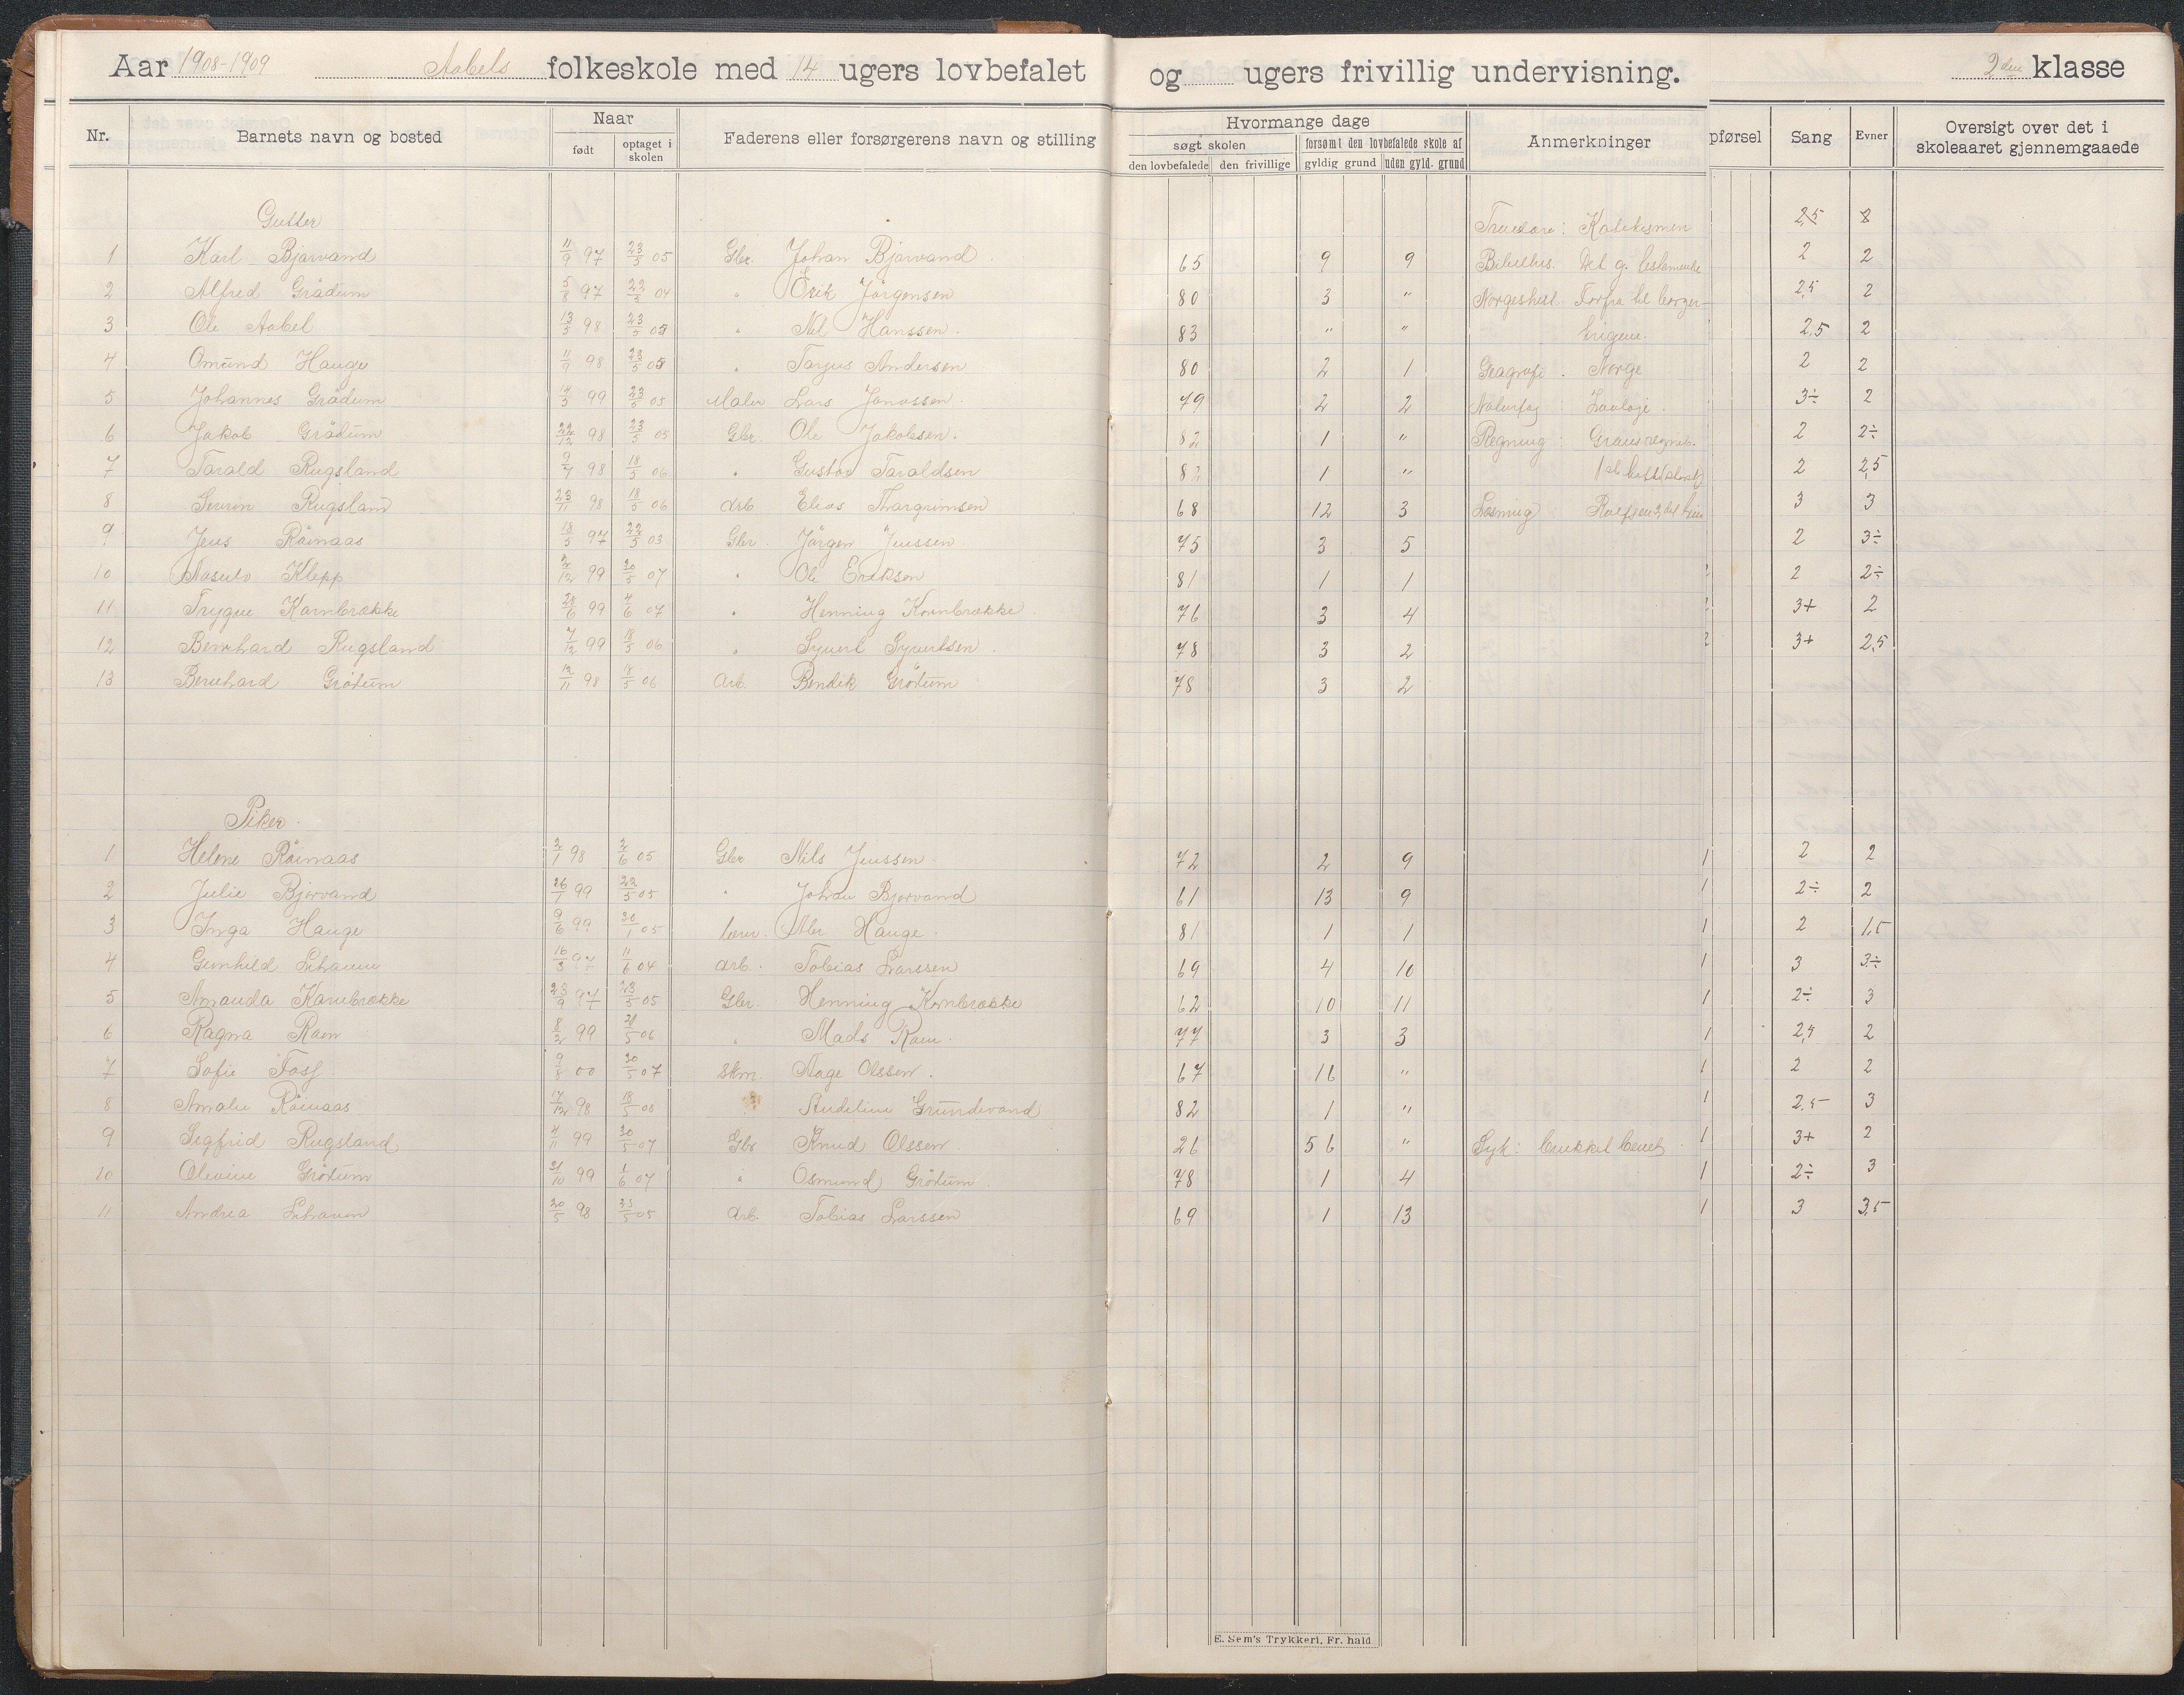 Aar 1908-1909 Aabels folkeskole med 14 ugers lovbefalet og ugers frivillig undervisning. 2den klasse
Nr. Barnets navn og bosted Naar født optaget i skolen Faderens eller forsørgerens navn og stilling Hvormange dage søgt skolen den lovbefalede den frivillige forsømt den lovbefalede skole af gyldig grund uden gyld. grund Anmerkninger pførsel Sang Evner Oversigt over det i skoleaaret gjennemgaaede
Gutter Katekismen 2,5
1 Karl Bjørvand 11/9 97 23/5 05 Gbr. Johan Bjørvand 65 9 9 Bibelhis. Det g. testamente 2 2
2 Alfred Grödum 5/8 97 22/5 04 " Erik Jörgensen 80 3 " Norgeshist. 2,5 2
3 Ole Aabel 13/5 98 23/5 05 " Nil Hanssen. 83 " " 2,5 2
4 Omund Hauge 11/9 98 23/5 05 " Tarjus Andersen 80 2 1 Geagrafi. Norge 2 2
5 Johannes Grödum 14/5 99 23/5 05 Maler Lars 79 2 2 Naturfag : 3÷ 2
6 Jakob Grödum 22/12 98 23/5 05 Gbr. Ole Jakobsen. 82 1 " Regning : 2 2÷
7 Tarald Rugsland 9/7 98 18/5 06 " Gustav Taraldsen 82 1 " 2 2,5
8 Rugsland 23/11 98 18/5 06 Arb Elias Thorgrimsen 68 12 3 Læsning 3 3
9 Jens Röinaas 18/5 97 22/5 03 Gbr. Jörgen Jenssen 75 3 5 2 3÷
10 Klepp 2/12 99 30/5 07 " Ole Eriksen 81 1 1 2 2÷
11 Trygve Kornbrække 28/6 99 4/6 07 " Henning Kornbrække 76 3 4 3+ 2
12 Bernhard Rugsland 7/12 99 18/5 06 " Syvert Syvertsen. 78 3 2 3+ 2,5
13 Bernhard Grötum 12/11 98 18/5 06 Arb. Bendik Grötum 78 3 2
Piker.
1 Helene Röinaas 2/1 98 2/6 05 Gbr Nils Jenssen 72 2 9 1 2 2
2 Julie Bjørvand 26/1 99 22/5 05 " Johan Bjørvand 61 13 9 1 2÷ 2
3 Inga Hauge 9/6 99 30/1 05 lærer. Hauge. 81 1 1 1 2 1,5
4 Gunhild 16/3 97 11/6 04 Arb. Tobias Larssen 69 4 10 1 3 3÷
5 Amanda Kornbrække 23/9 97 23/5 05 Gbr. Henning Kornbrække 62 10 11 1 2÷ 3
6 Ragna Raen 8/2 99 21/5 06 " Mads Raen. 77 3 3 1 2
7 Sofie 9/8 00 30/5 07 Skm. Aage Olssen. 67 16 " 1 2 2
8 Amalie Röinaas 17/12 98 18/5 06 Grundevand 82 1 " 1 2,5 3
9 Sigfrid Rugsland 4/11 99 30/5 07 Gbr Knud Olssen 26 56 " Syk: 1 3+ 2
10 Olevine Grötum 31/10 99 1/6 07 " Osmund Grötum. 78 1 4 1 2÷ 3
11 Andrea 20/5 98 23/5 05 Arb. Tobias Larssen 69 1 13 1 3 3,5
E. Sem's Trykkeri, Fr. hald